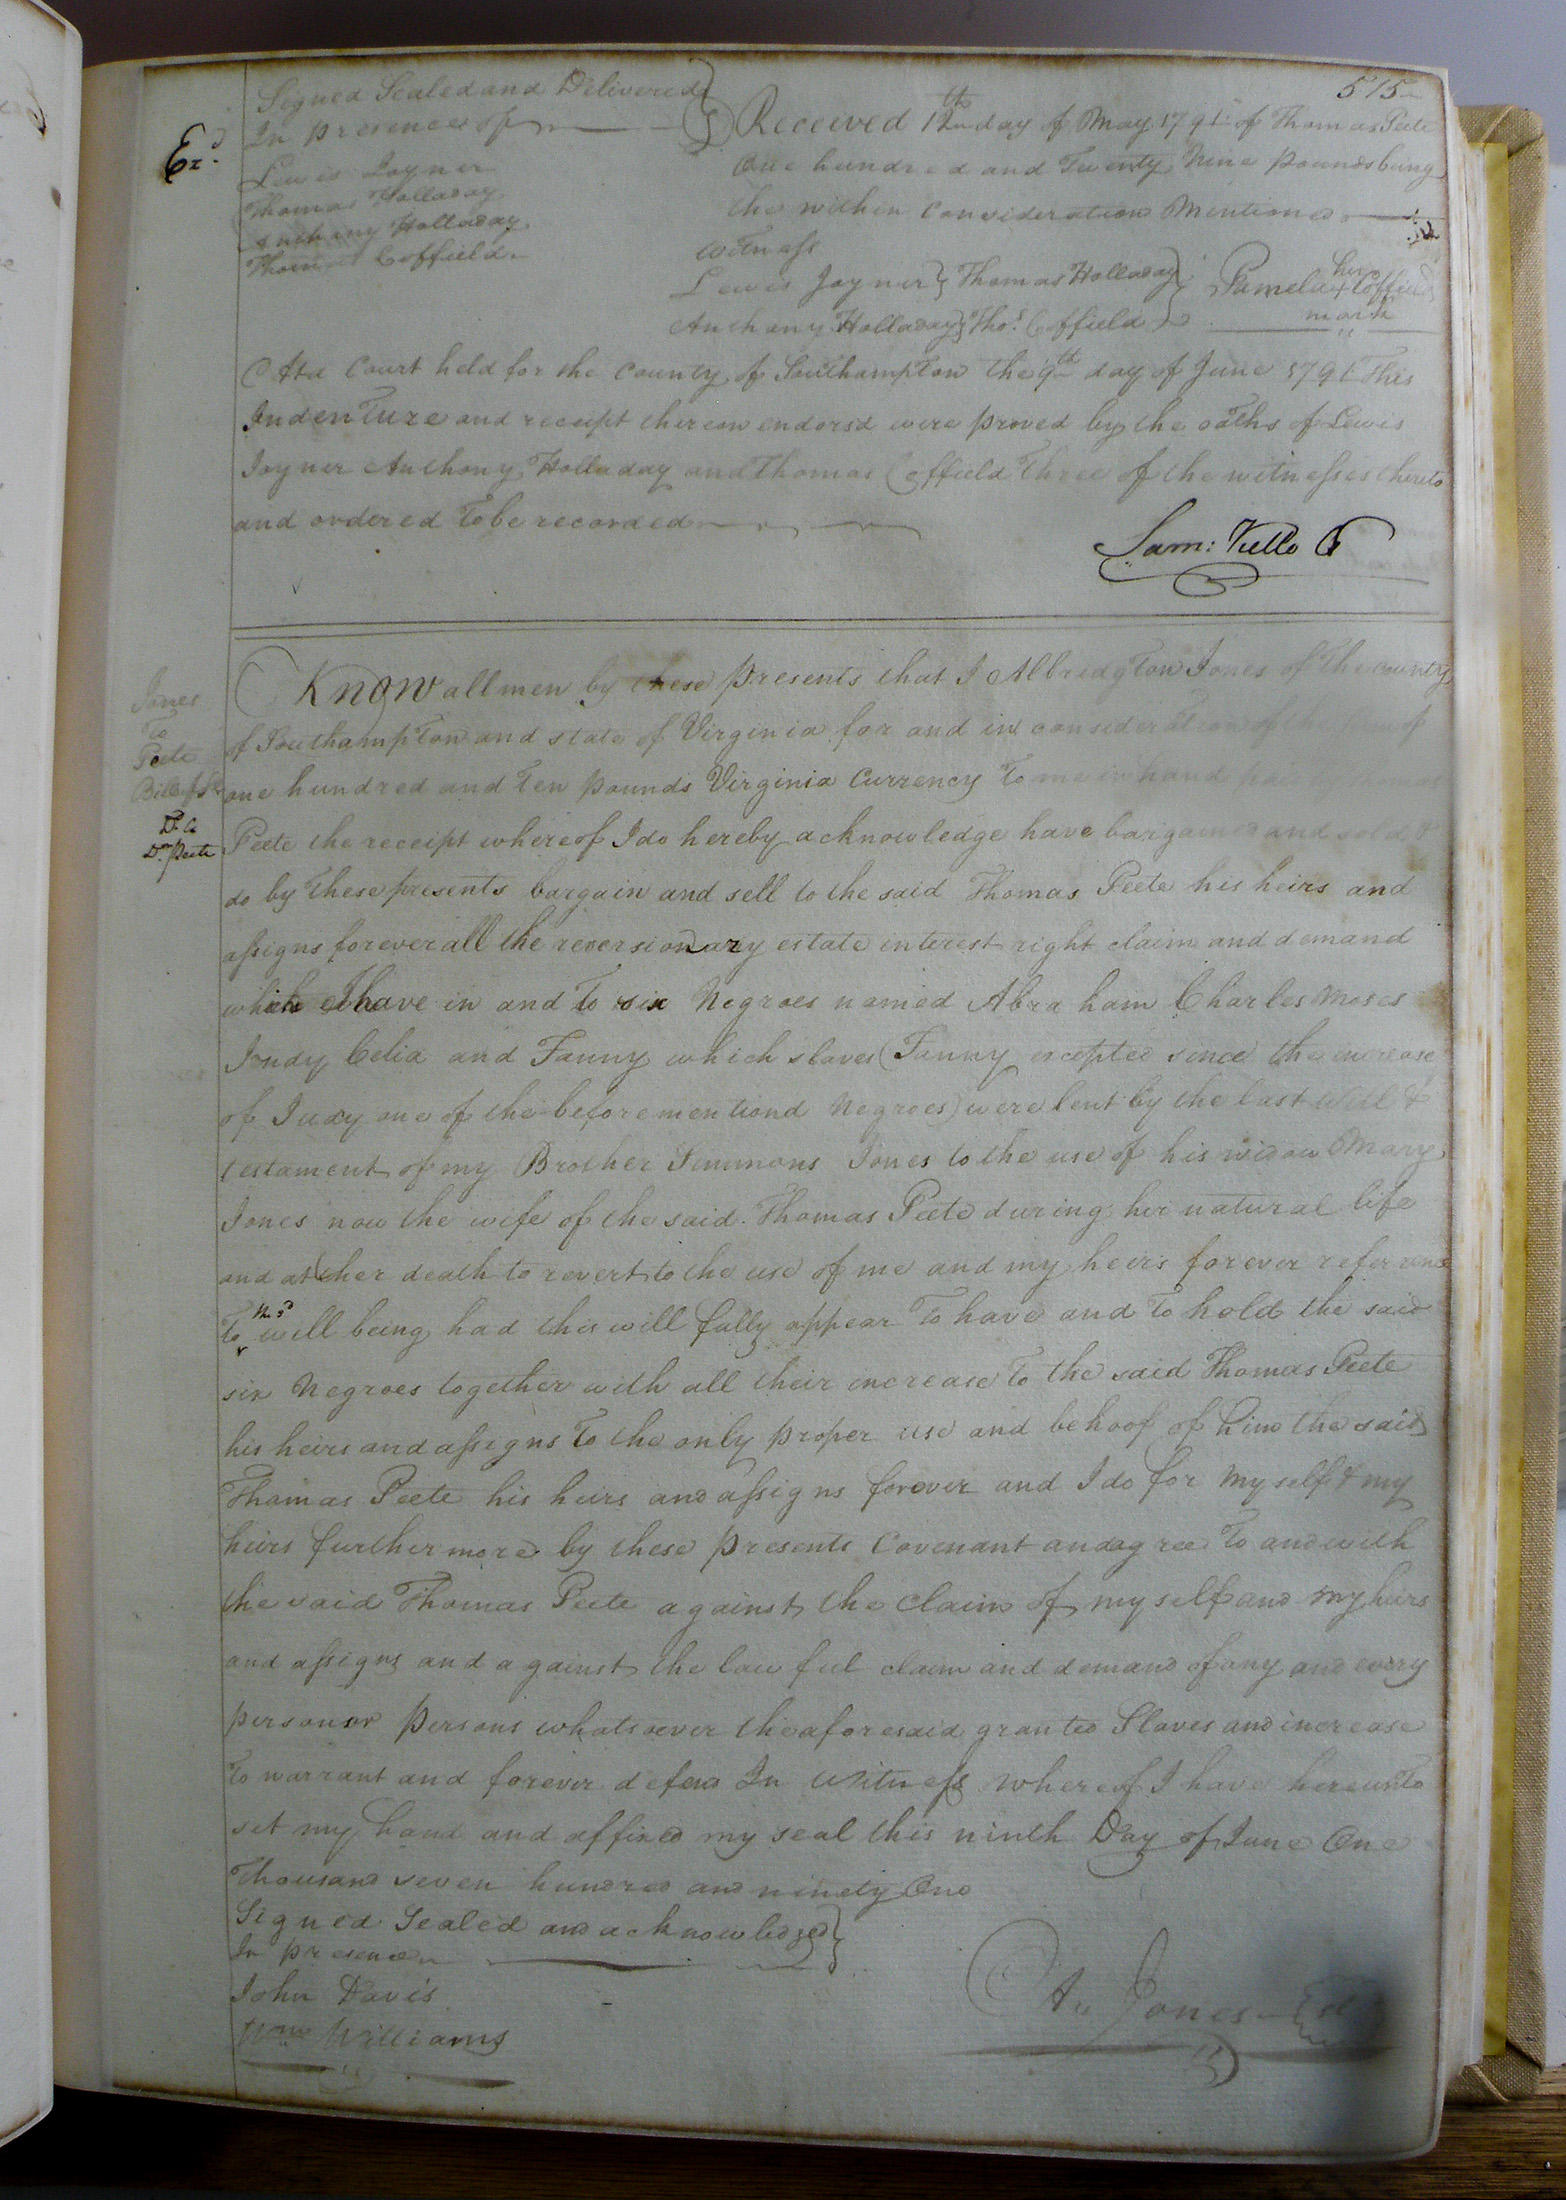 515
Signed Sealed and Delivered
In presence of
Exd.
Lewis Joyner
Thomas Holladay
Anthony Holladay
Thomas Coffield
Received 12th day of May 1791 of Thomas Peete
One hundred and Twenty Nine pounds being
the within Consideration Mentioned
Witness
Lewis Joyner } Thomas Holladay }
Anthony Holladay } Thos. Coffield }
her
Pamela + Coffield
mark
At a Court held for the County of Southampton the 9th day of June 1791 This
Indenture and receipt thereon endorsd were proved by the oaths of Lewis
Joyner Anthony Holladay and Thomas Coffield Three of the witnesses thereto
and ordered To be recorded
Sam: Kello
Jones
To
Peete
Bill of Sl
Dd.
Peete
Know all men by these presents that I Albridgton Jones of the county
of Southampton and state of Virginia for and in consideration of the sum of
one hundred and Ten pounds Virginia Currency To me in hand paid Thomas
Peete the receipt whereof I do hereby acknowledge have bargained and sold &
do by These presents bargain and sell to the said Thomas Peete his heirs and
assigns forever all the reversionary estate interest right claim and demand
which I have in and To six Negroes named Abraham Charles Moses
Judy Celia and Fanny which slaves (Fanny excepted since the increase
of Judy one of the beforementiond Negroes) were lent by the last Will &
testament of my Brother Simmons Jones to the use of his widow Mary
Jones now the wife of the said Thomas Peete during her natural life
and at her death to revert to the use of me and my heirs forever reference
To the sd will being had this will fully appear To have and To hold the said
six Negroes together with all their increase To the said Thomas Peete
his heirs and assigns To the only proper use and behoof of him the said
Thomas Peete his heirs and assigns forever and I do for my self & my
heirs furthermore by these presents Covenant and agree To and with
the said Thomas Peete against the claim of my self and my heirs
and assigns and against the lawful claim and demand of any and every
person or persons whatsoever the aforesaid granted Slaves and increase
To warrant and forever defend In Witness whereof I have hereunto
set my hand and affixed my seal this ninth Day of June One
Thousand seven hundred and ninety One
Signed Sealed and acknowledged }
In presence
John Davis
Wm Williams
Jones